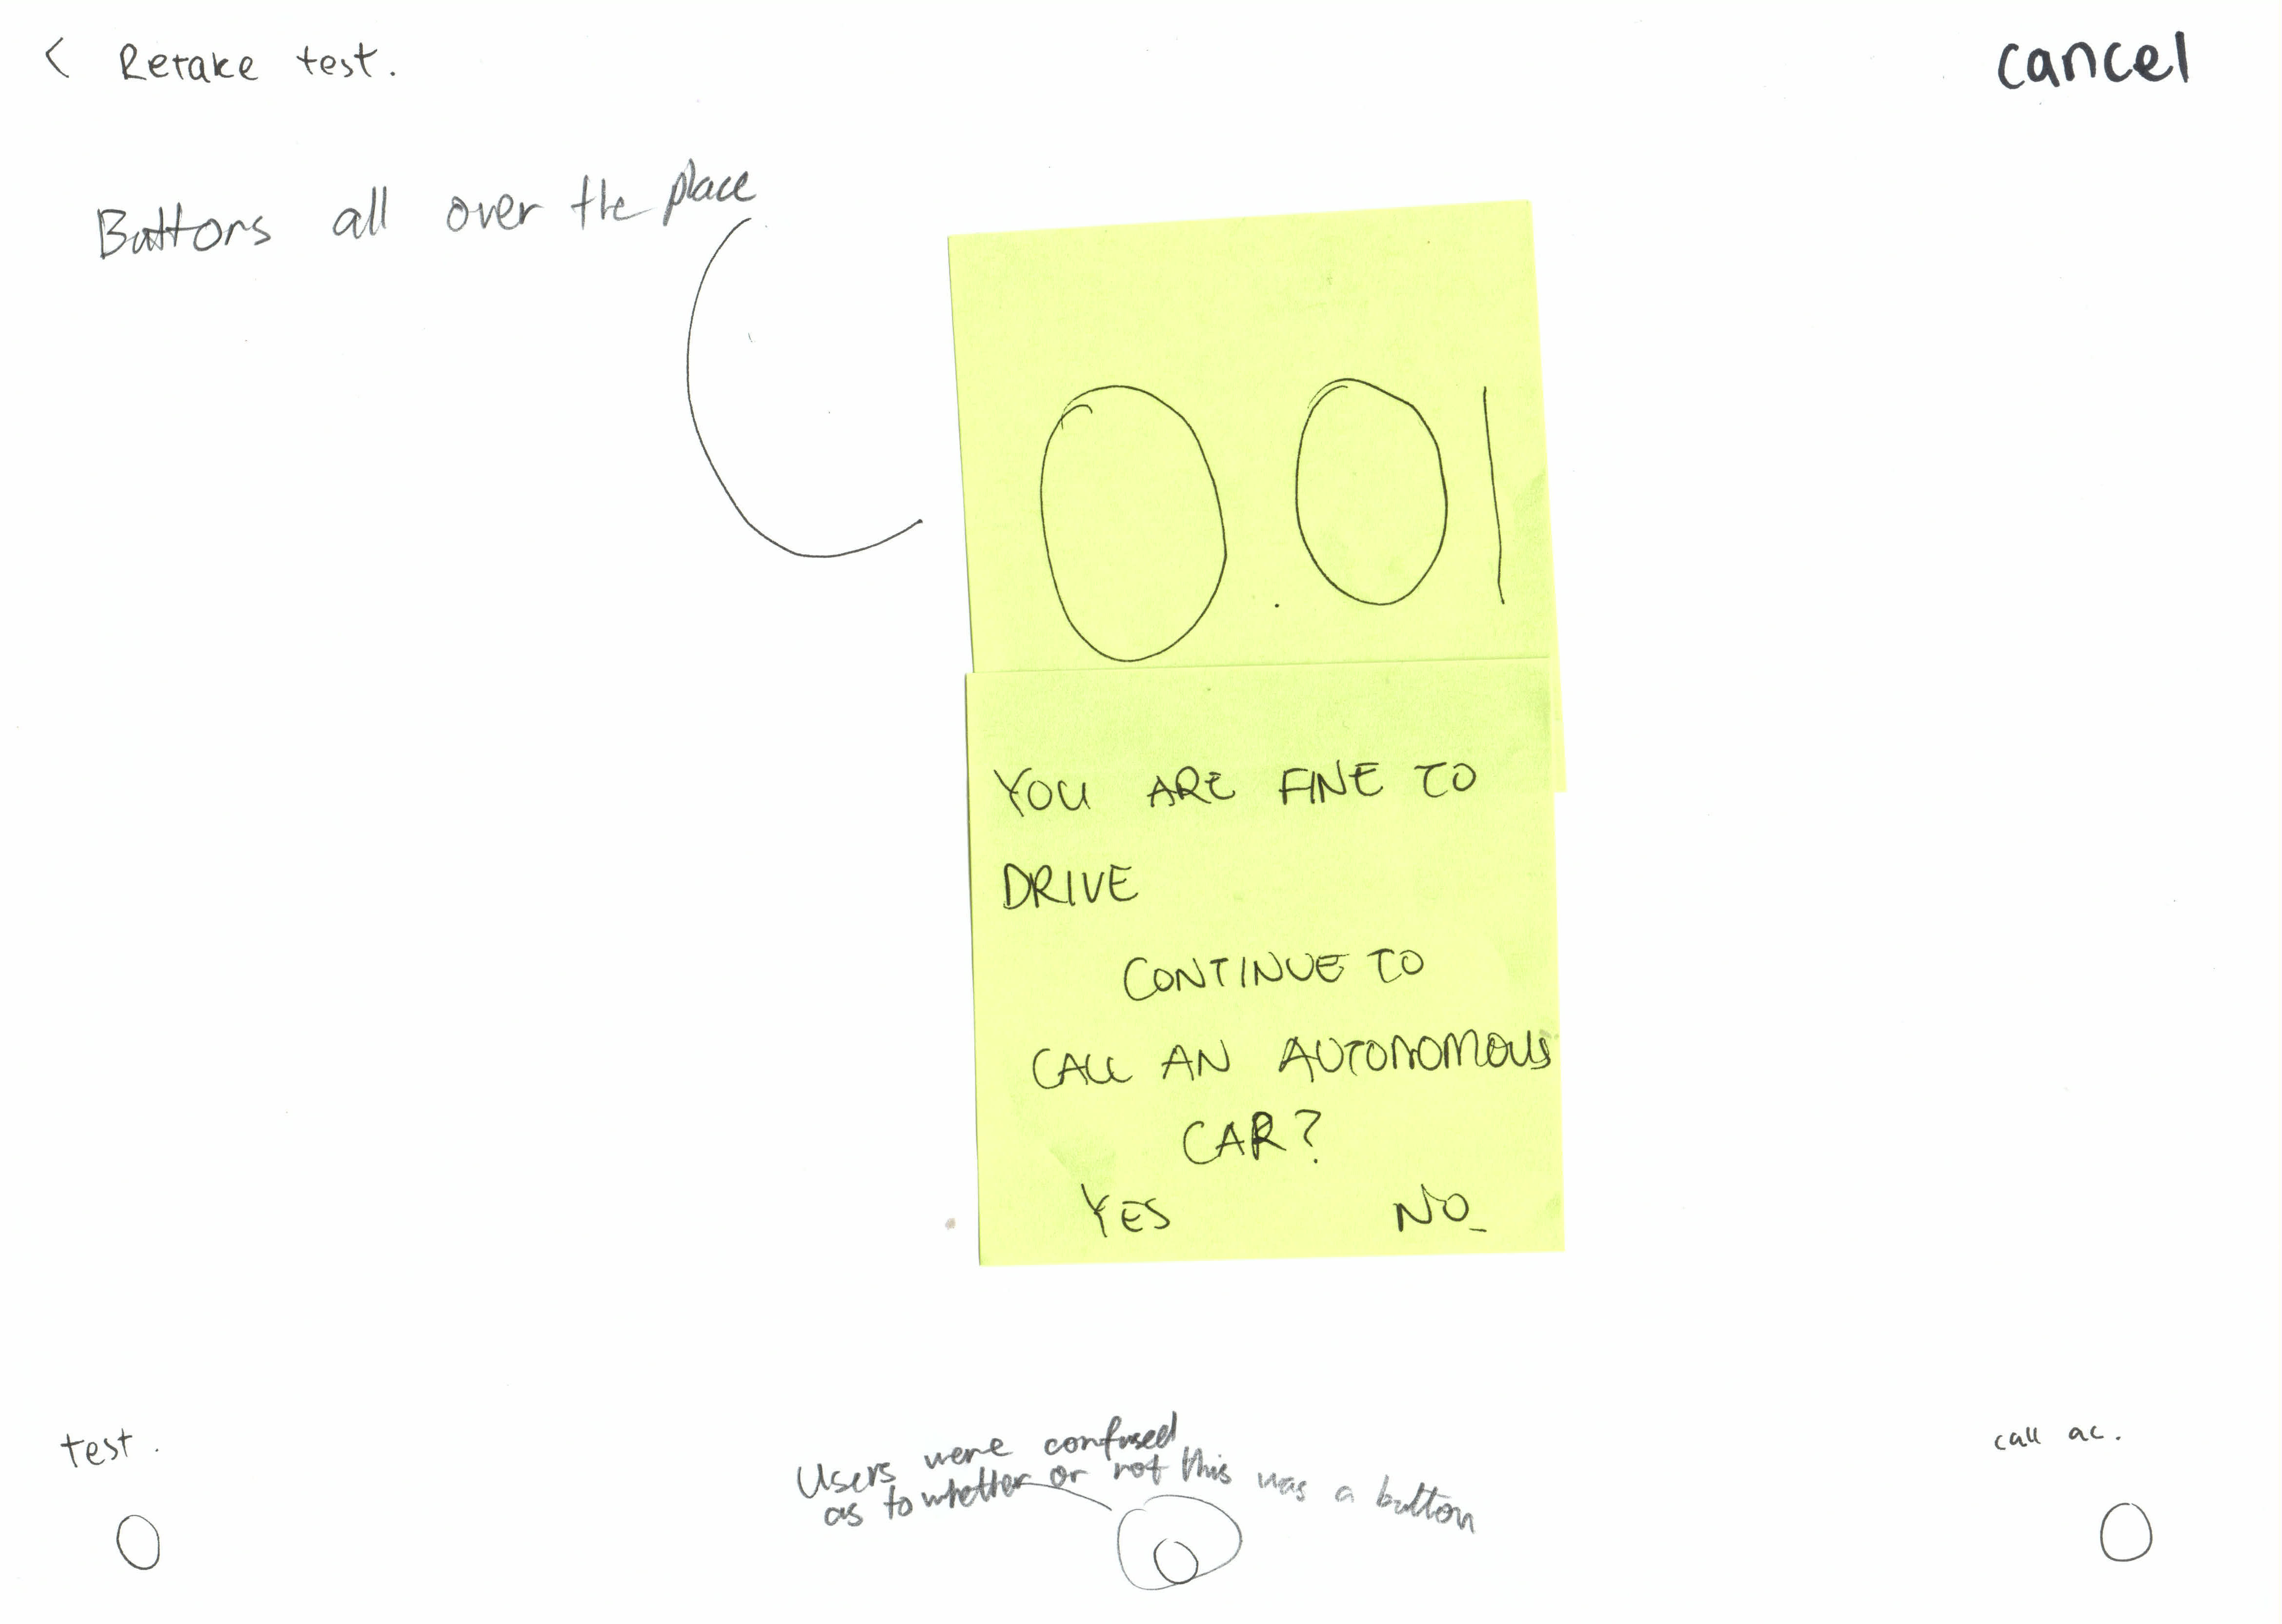 < Retake test.
cancel
Buttons all over the place
0.01
YOU ARE FINE TO
DRIVE
CONTINUE TO
CALL AN AUTONOMOUS
CAR?
YES NO
test.
call ac.
Users were confused
as to whether or not this was a button